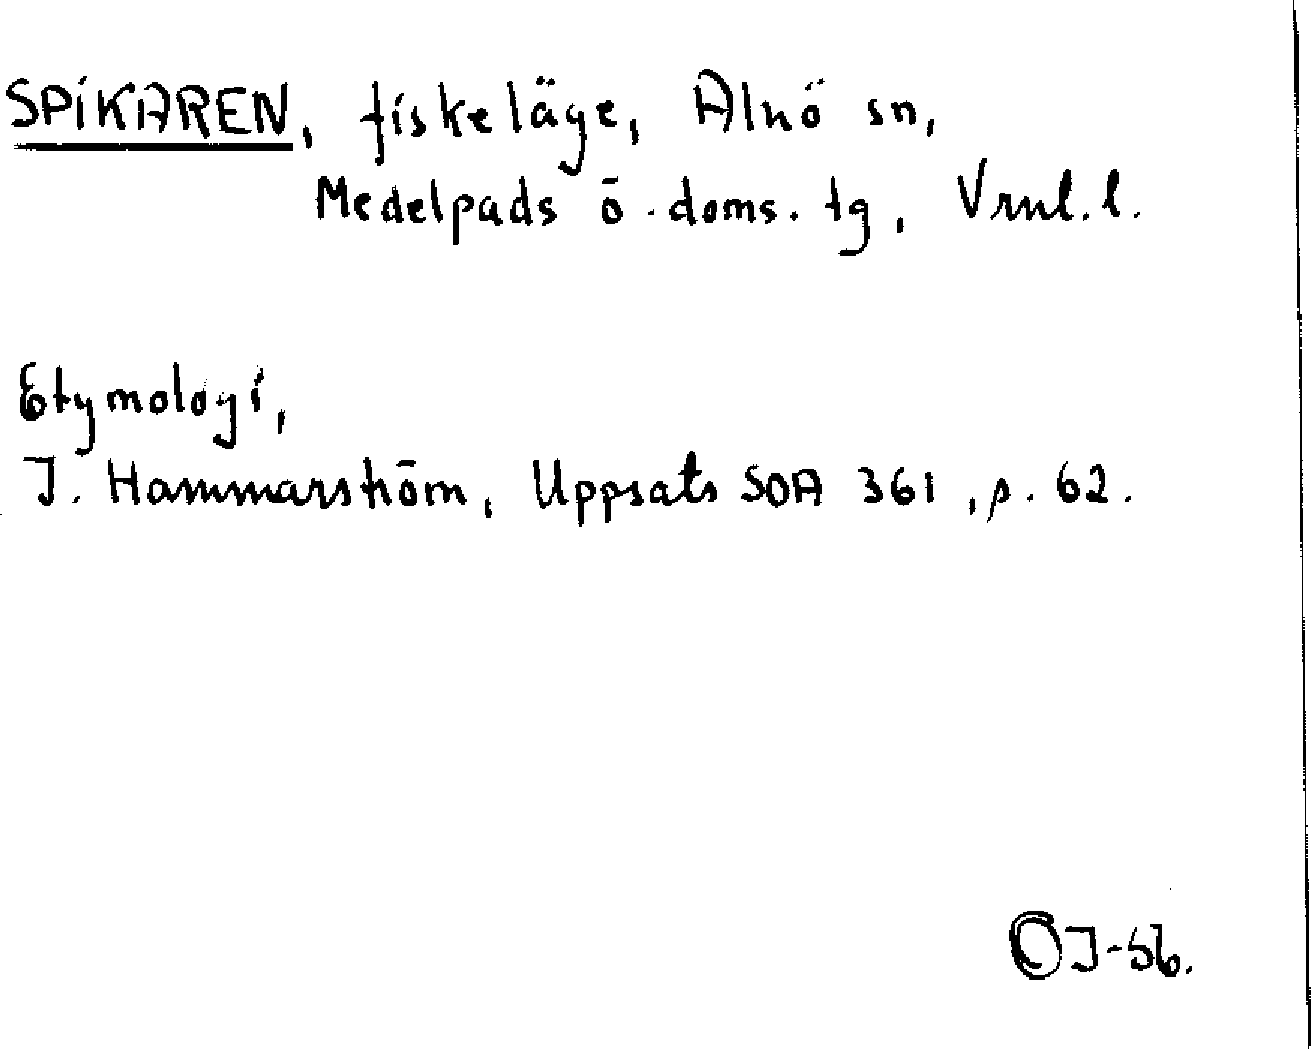 SPIKAREN, fiskeläge, Alnö sn,
Medelpads ö. doms. tg, Vrnl. l.
Etymologi,
J. Hammarström, Uppsats SOA 361, p. 62.
OJ-56.